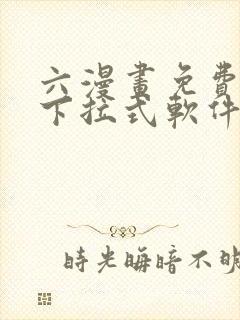 六漫畫免費
下拉式軟件
時光晦暗不明